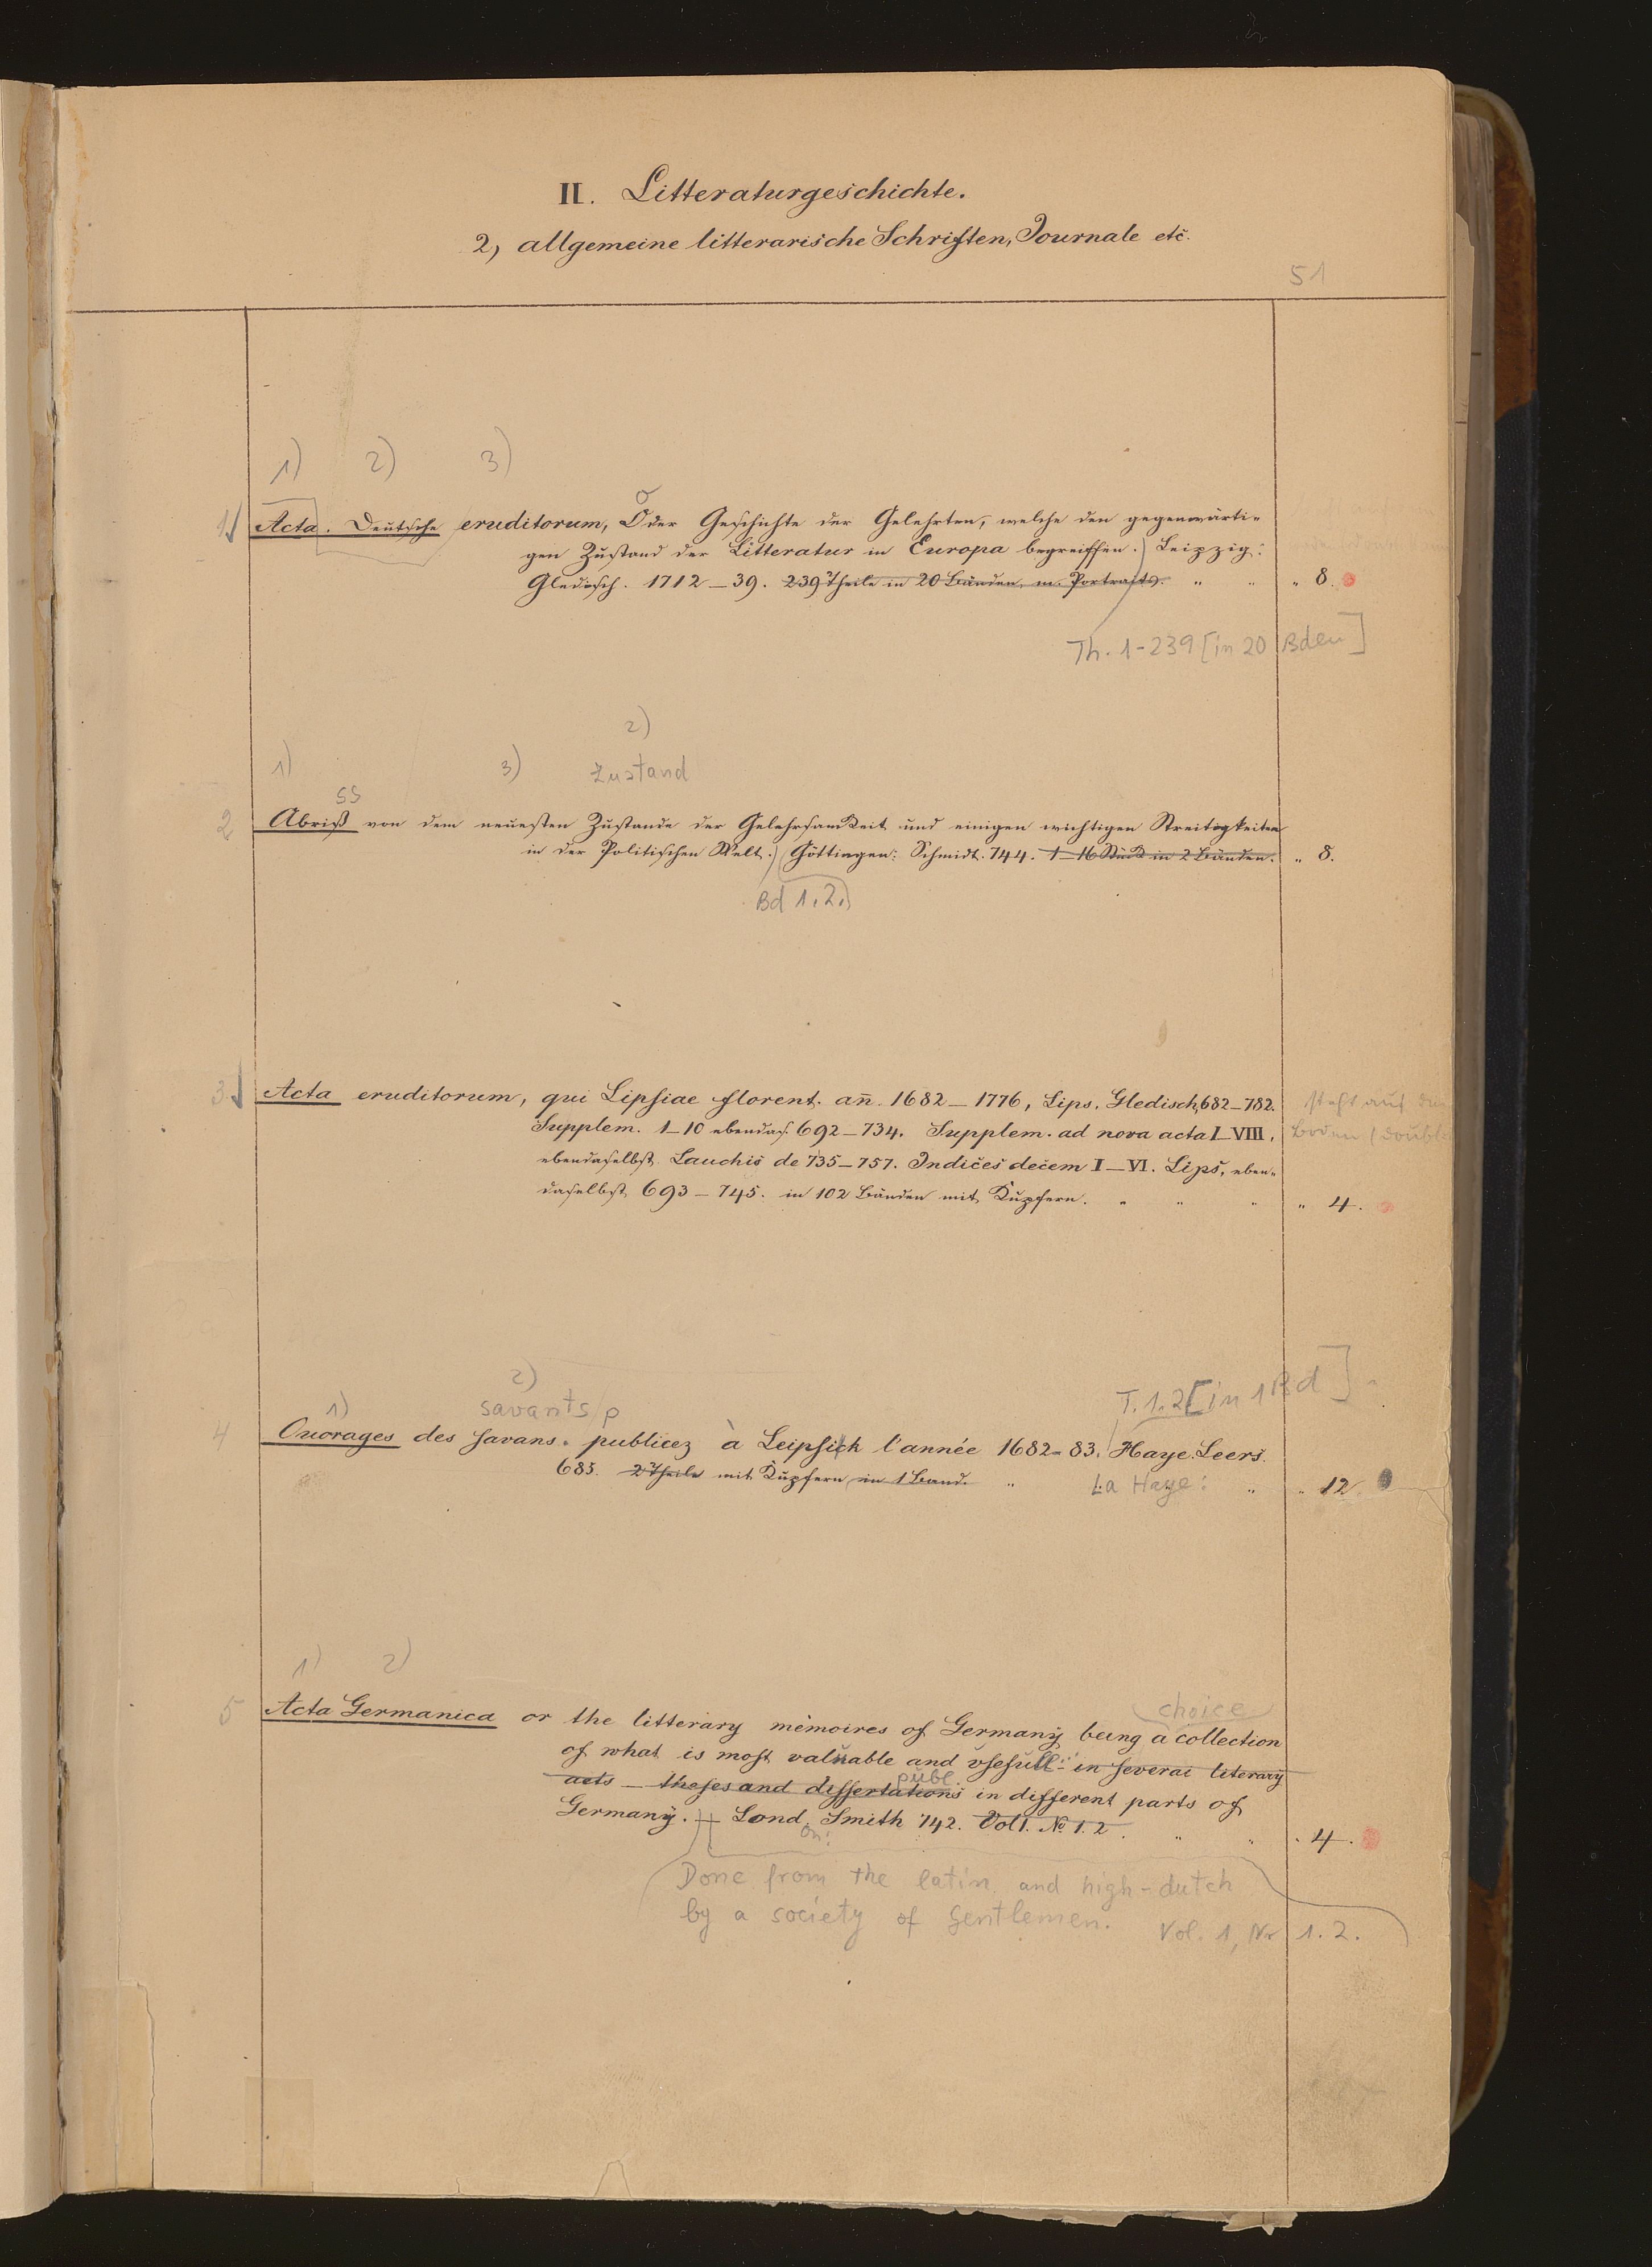 II. Litteraturgeschichte.
2, allgemeine litterarische Schriften, Journale etc.
51
1) 2) 3)
1. Acta. Deutsche eruditorum, Oder Geschichte der Gelehrten, welche den gegenwärti-
gen Zustand der Litteratur in Europa begreiffen.) Leipzig:
Gleditsch. 1712–39. 239 Theile in 20 Bänden m. Portraits. " " " 8.
Th. 1-239 [in 20 Bden]
2)
1) 3) Zustand
ss
2 Abriß von dem neuesten Zustande der Gelehrsamkeit und einigen wichtigen Streitigkeiten
in der Politischen Welt.) Göttingen: Schmidt. 744. 1–16 Stück in 2 Bänden. " 8.
Bd 1.2.
3. Acta eruditorum, qui Lipsiae florent. an̄. 1682–1776, Lips. Gledisch, 682–782. steht auf dem
Supplem. 1–10 ebendas. 692–734. Supplem. ad nova acta I–VIII, Boden (
ebendaselbst. Lauchis de 735–757. Indices decem I–VI. Lips, eben-
daselbst 693–745. in 102 Bänden mit Kupfern. " " " " 4.
2) T. 1.2 [in 1 Bd]
1) savants p
4 Ouvrages des savans. publicez à Leipsick l'année 1682-83. Haye. Leers.
685. 2 Theile mit Kupfern in 1 Band. " La Haye: " " 12.
1) 2)
choice
5 Acta Germanica or the litterary mémoires of Germany being a collection
of what is most valuable and vsefull in several literary
publ.
acts – theses and dissertations in different parts of
Germany. Lond. Smith 742. Vol 1. No 1. 2. " " " 4.
on:
Done from the latin. and high-dutch
by a society of gentlemen. Vol. 1, Nr 1. 2.